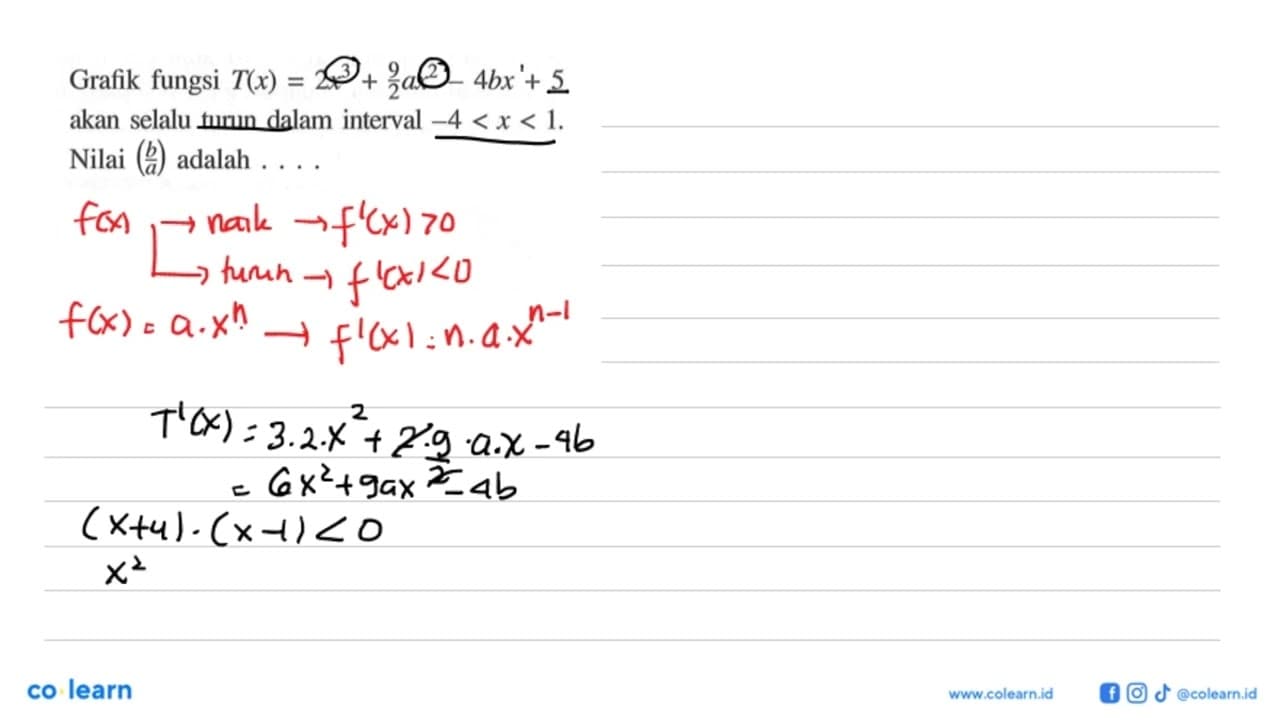 Grafik fungsi T(x) = 2x³ + 9/2 ax² – 4bx + 5
akan selalu turun dalam interval –4 < x < 1.
Nilai (b/a) adalah . . . .
f(x) → naik → f'(x) > 0
→ turun → f'(x) < 0
f(x) = a.xⁿ → f'(x) = n.a.xⁿ⁻¹
T'(x) = 3.2.x² + 2.9/2 .a.x – 4b
= 6x² + 9ax – 4b
(x+4).(x–1) < 0
x²
co learn
www.colearn.id @colearn.id